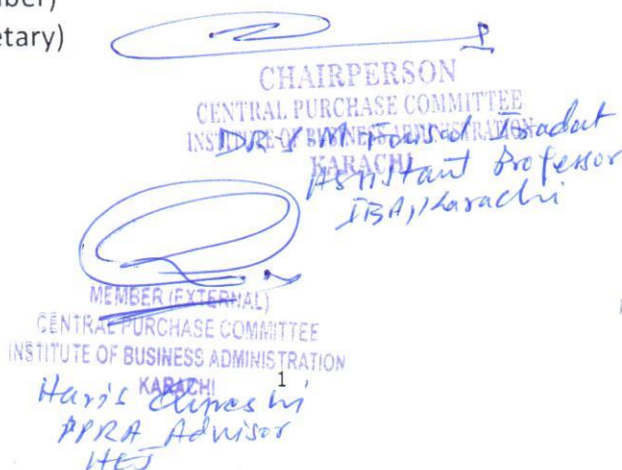 ber)
etary)
CHAIRPERSON
CENTRAL PURCHASE COMMITTEE
INSTITUTE OF BUSINESS ADMINISTRATION
KARACHI
DR S M Iradat
Assistant Professor
IBA, Karachi
MEMBER (EXTERNAL)
CENTRAL PURCHASE COMMITTEE
INSTITUTE OF BUSINESS ADMINISTRATION
KARACHI
1
Haris
PPRA Advisor
HEJ